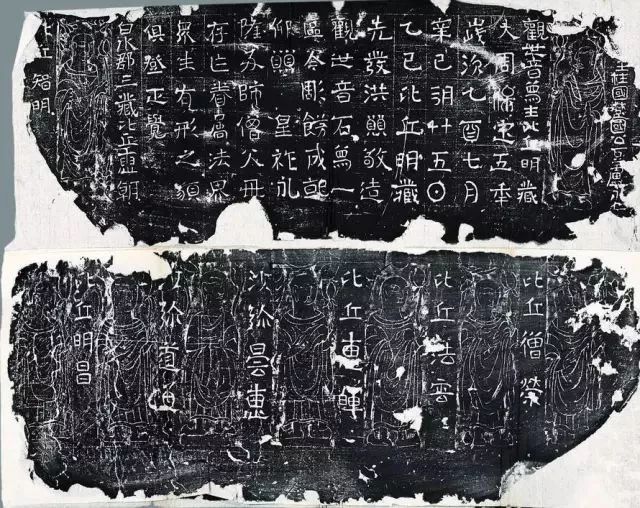 柱國楚國公
觀世音像主比丘明藏
大周保定五年
歲次乙酉七月
辛巳朔廿五日
乙巳比丘明藏
先發洪願敬造
觀世音石像一
區今彫餝成就
仰願 皇祚永
隆 師僧父母
存亡眷屬法界
眾生有形之類
俱登正覺
白水郡三藏比丘曇朗
比丘智明
比丘僧榮
比丘法雲
比丘惠暉
沙弥曇惠
沙弥道
比丘明昌